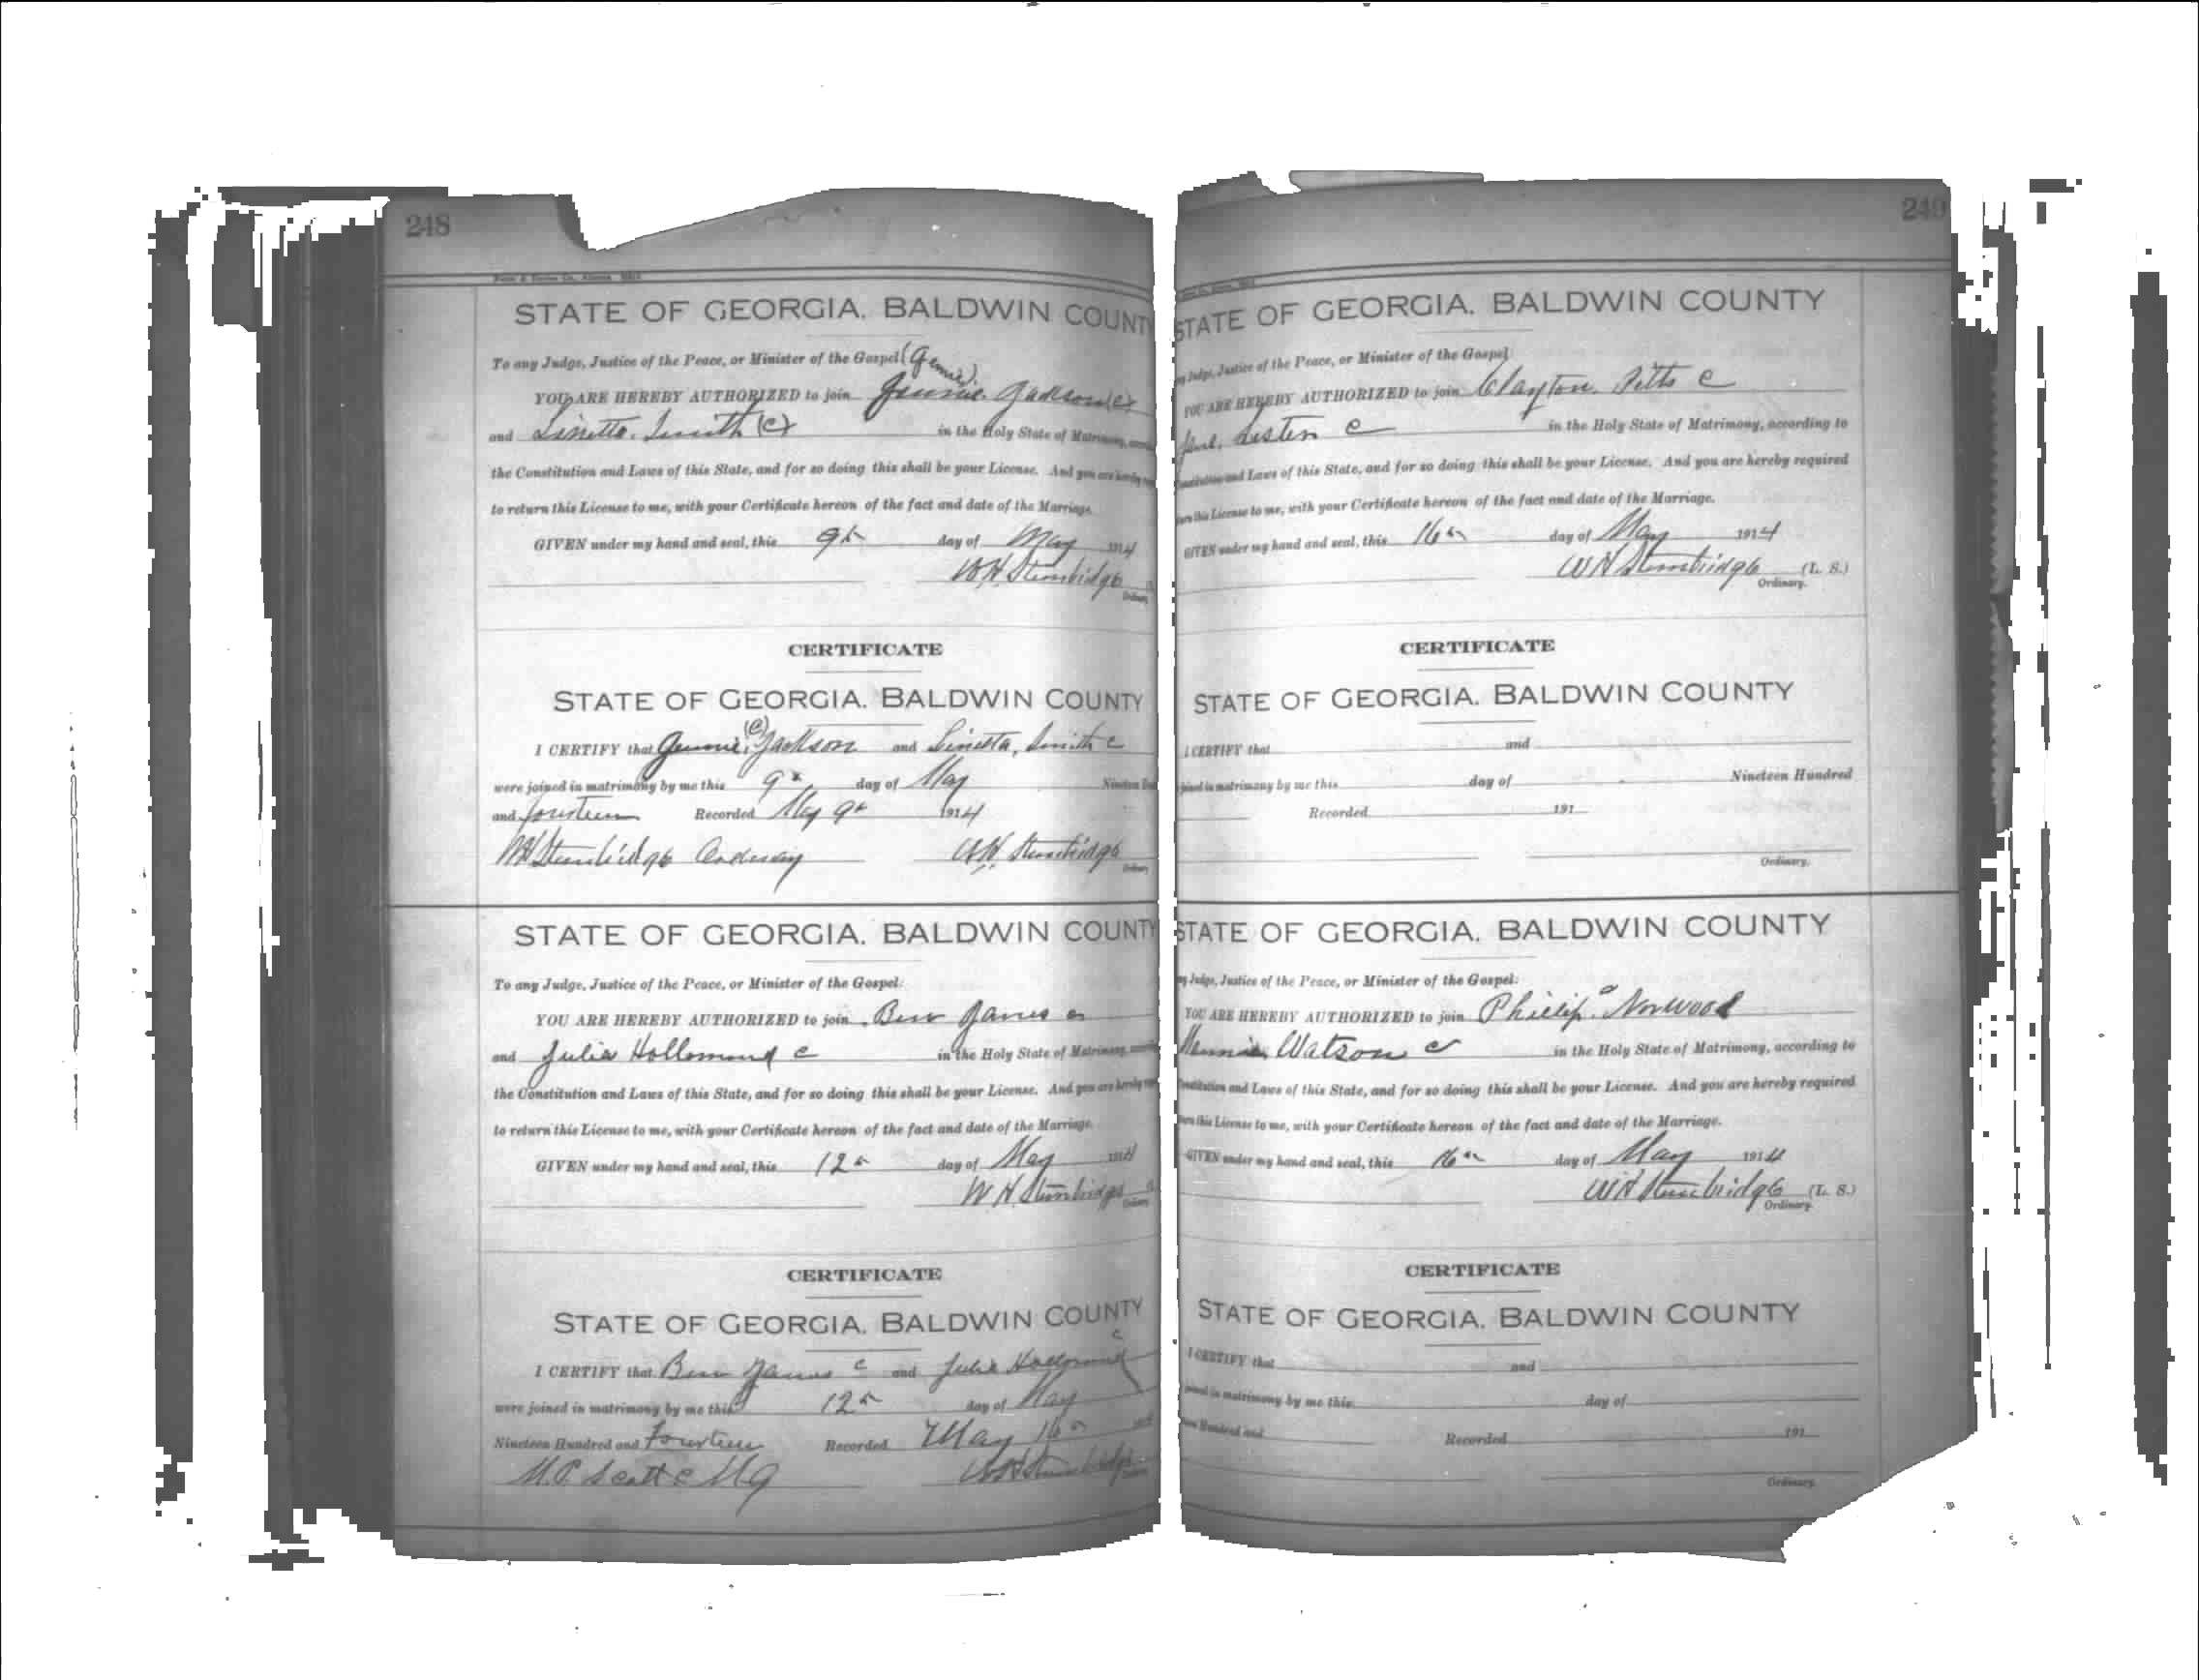 248
STATE OF GEORGIA. BALDWIN COUNTY
To any Judge, Justice of the Peace, or Minister of the Gospel (Gemie)
YOU ARE HEREBY AUTHORIZED to join Jackson (c)
and Linetta. Smith (c) in the Holy State of Matrimony,
the Constitution and Laws of this State, and for so doing this shall be your License. And you are hereby
to return this License to me, with your Certificate hereon of the fact and date of the Marriage.
GIVEN under my hand and seal, this 9th day of May 1914
W H Stembridge
Ordinary
CERTIFICATE
STATE OF GEORGIA. BALDWIN COUNTY
(c)
I CERTIFY that Jackson and Linetta, Smith c
were joined in matrimony by me this 9th day of May Nineteen
and fourteen Recorded May 9th 1914
W H Stembridge Ordinary W H Stembridge
Ordinary
STATE OF GEORGIA. BALDWIN COUNTY
To any Judge, Justice of the Peace, or Minister of the Gospel:
YOU ARE HEREBY AUTHORIZED to join Ben James c
and Julia Hollomond c in the Holy State of Matrimony,
the Constitution and Laws of this State, and for so doing this shall be your License. And you are hereby
to return this License to me, with your Certificate hereon of the fact and date of the Marriage.
GIVEN under my hand and seal, this 12th day of May 1914
W H Stembridge
Ordinary
CERTIFICATE
STATE OF GEORGIA. BALDWIN COUNTY
c
I CERTIFY that Ben James c and Julia Hollomond
were joined in matrimony by me this 12th day of May
Nineteen Hundred and Fourteen Recorded May 16th
M.P. Scott c MG W H Stembridge
249
STATE OF GEORGIA. BALDWIN COUNTY
Judge, Justice of the Peace, or Minister of the Gospel:
YOU ARE HEREBY AUTHORIZED to join Clayton. Pitts c
Lester c in the Holy State of Matrimony, according to
Constitution and Laws of this State, and for so doing this shall be your License. And you are hereby required
this License to me, with your Certificate hereon of the fact and date of the Marriage.
GIVEN under my hand and seal, this 16th day of May 1914
W H Stembridge (L. S.)
Ordinary.
CERTIFICATE
STATE OF GEORGIA. BALDWIN COUNTY
I CERTIFY that and
joined in matrimony by me this day of Nineteen Hundred
Recorded 191
Ordinary.
STATE OF GEORGIA. BALDWIN COUNTY
Judge, Justice of the Peace, or Minister of the Gospel:
YOU ARE HEREBY AUTHORIZED to join Phillip c Norwood
Watson c in the Holy State of Matrimony, according to
Constitution and Laws of this State, and for so doing this shall be your License. And you are hereby required
this License to me, with your Certificate hereon of the fact and date of the Marriage.
GIVEN under my hand and seal, this 16th day of May 1914
W H Stembridge (L. S.)
Ordinary.
CERTIFICATE
STATE OF GEORGIA. BALDWIN COUNTY
I CERTIFY that and
joined in matrimony by me this day of
Hundred and Recorded 191
Ordinary.